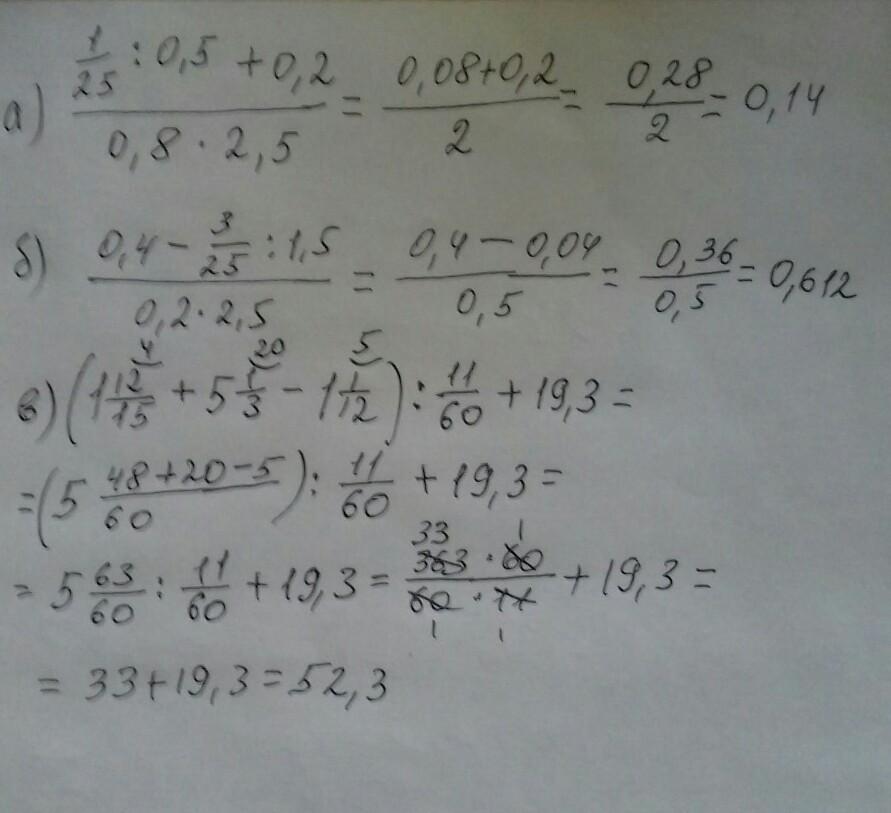 а) (1/25 : 0,5 + 0,2)/(0,8 · 2,5) = (0,08+0,2)/2 = 0,28/2 = 0,14
б) (0,4 − 3/25 : 1,5)/(0,2 · 2,5) = (0,4 − 0,04)/0,5 = 0,36/0,5 = 0,612
в) (1 12/15 ⁴ + 5 1/3 ²⁰ − 1 1/12 ⁵) : 11/60 + 19,3 =
= (5 (48+20−5)/60) : 11/60 + 19,3 =
= 5 63/60 : 11/60 + 19,3 = (363 ³³ · 60 ¹)/(60 ₁ · 11 ₁) + 19,3 =
= 33+19,3 = 52,3